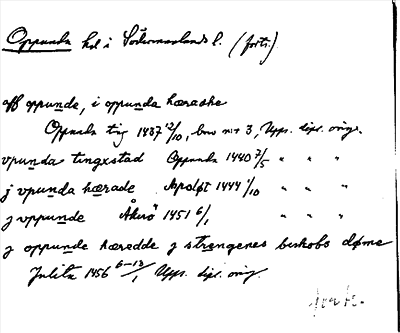 Oppunda hd i Södermanlands l. (forts.)
aff oppunde, i oppunda hæradhe
Oppunda ting 1437 12/10, bmr nr 3, Upps. dipl. orig.
vpunda tingxstad Oppunda 1440 7/5 " " "
j vpunda hærade Apoløt 1444 1/10 " " "
j vppunde Åkerö 1451 6/1 " " "
j oppunde hæredde j strengenes biskobs døme
Julita 1456 6-13/1, Upps. dipl. orig.